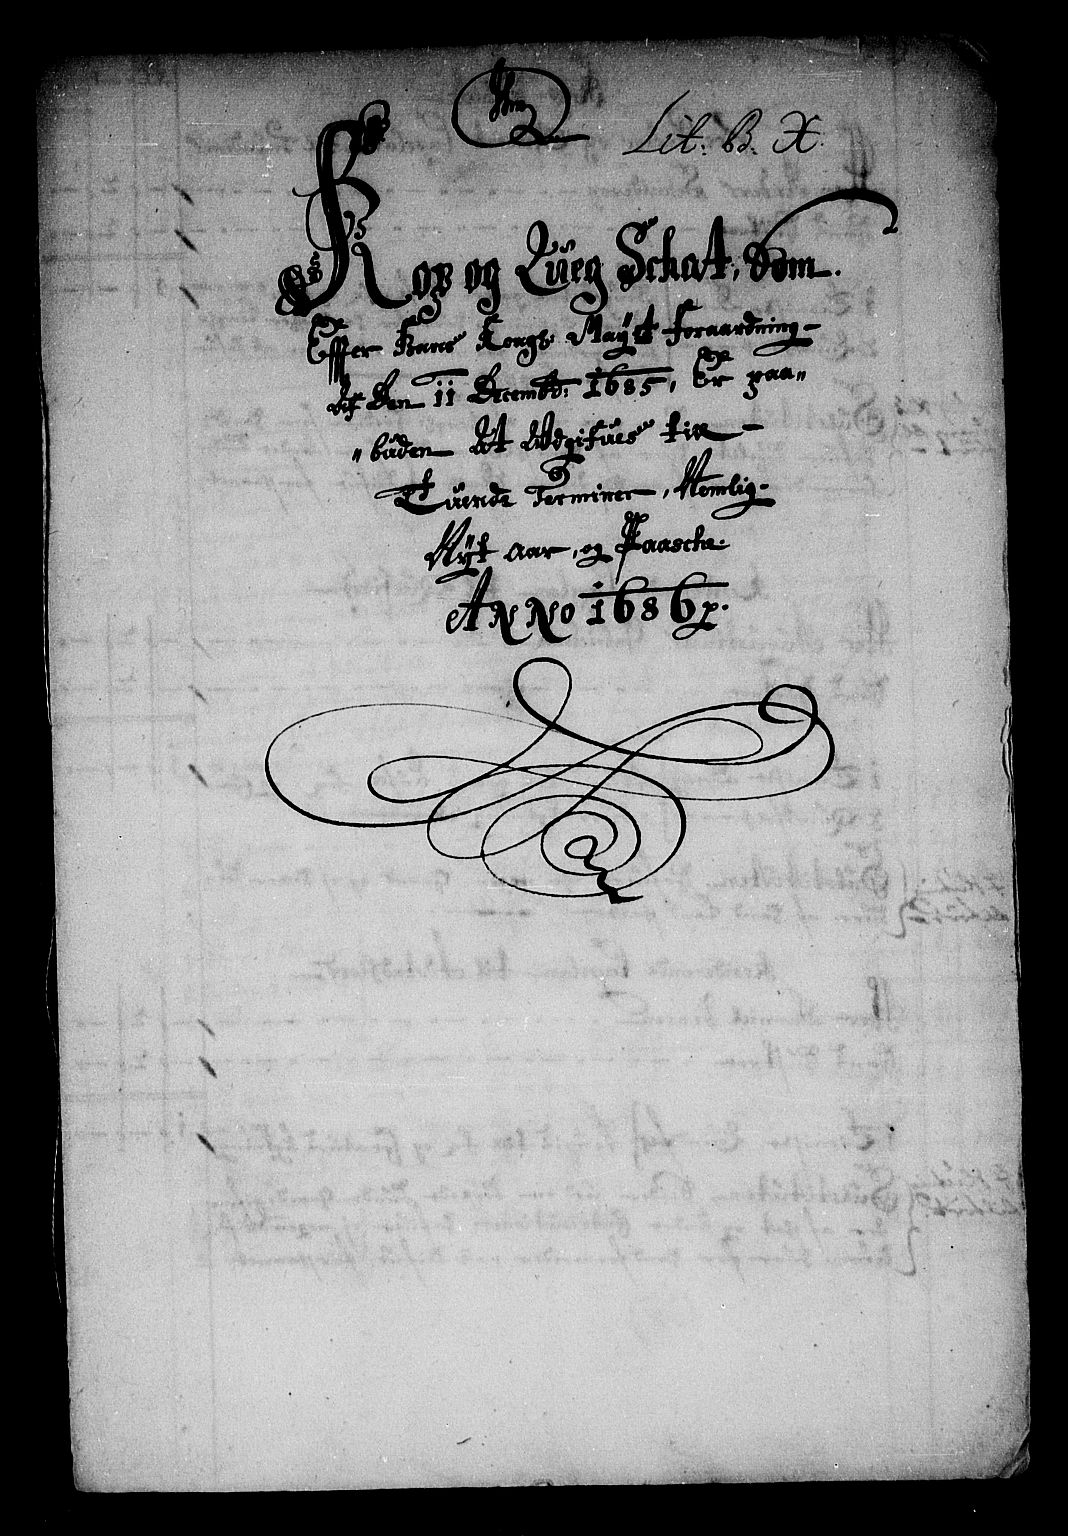 Lit: B. X.
Kop og Qüeg Schat, Som
Effter Hans Kongl: Maÿtz foraardning
Af Den 11 Decembr: 1685, Er paa„
„büden At Udgifües til
Tüende Terminer, Nemlig
Nÿt Aar, og Paasche
ANNO 1686 p.